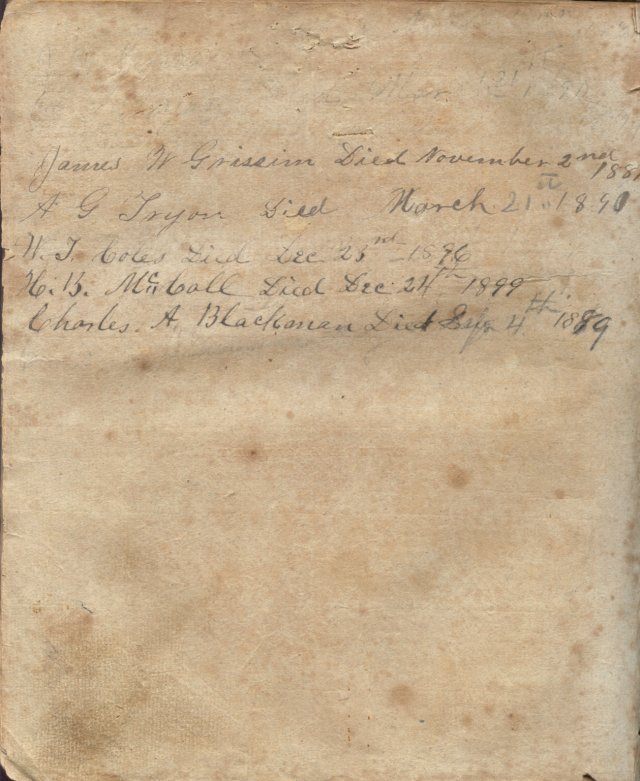 Mar 21st
James W Grissim Died November 2nd
A G Tryon Died March 21st 1890
W. T. Coles Died Dec 23rd 1896
H. B. McCall Died Dec 24th 1899
Charles A Blackman Died 4th 1889